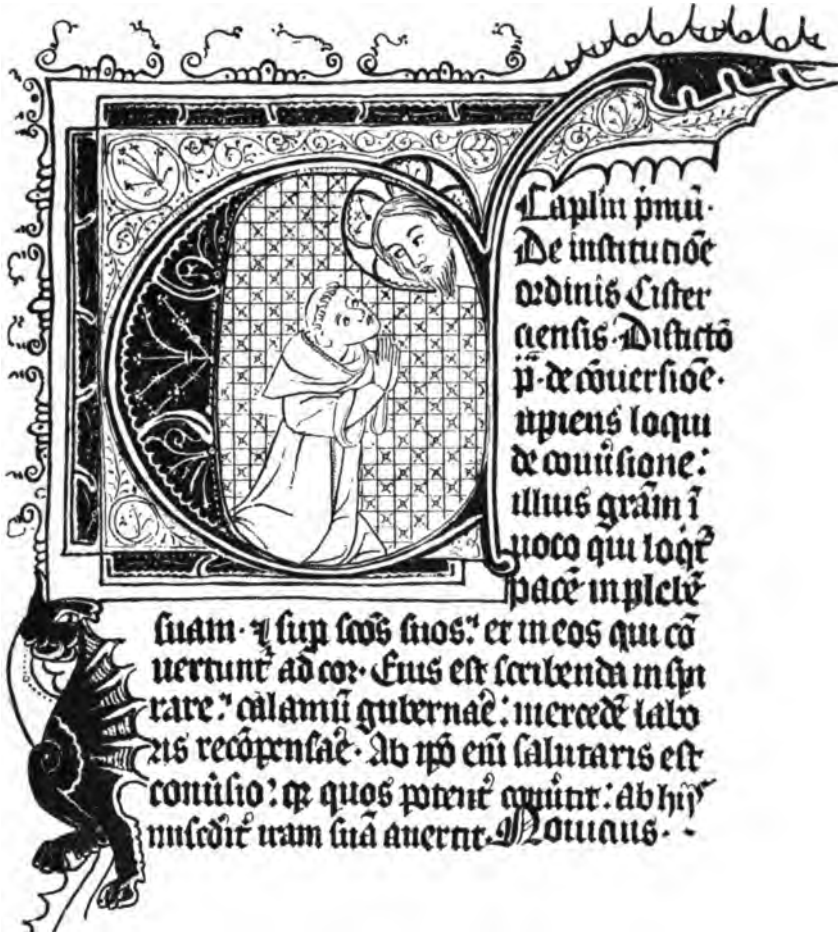 Caplm pmū·
De institutiōe
ordinis Cister
ciensis· Distictō
p̄· de cōuersiōe·
upiens loqui
de conūsione:
illius grām ī
uoco qui loqt̄
pacē in plebē
suam· ⁊ sup scōs suos: et in eos qui cō
uertunt̄ ad cor· Eius est scribenda inspi
rare: calamū gubernar̄: mercedē labo
ris recōpensar̄· Ab ip̄o em̄ salutaris est
conūsio: qꝛ quos potent̄ conūtit: ab hijs
miscdit̄ iram suā auertit· Nouicius·